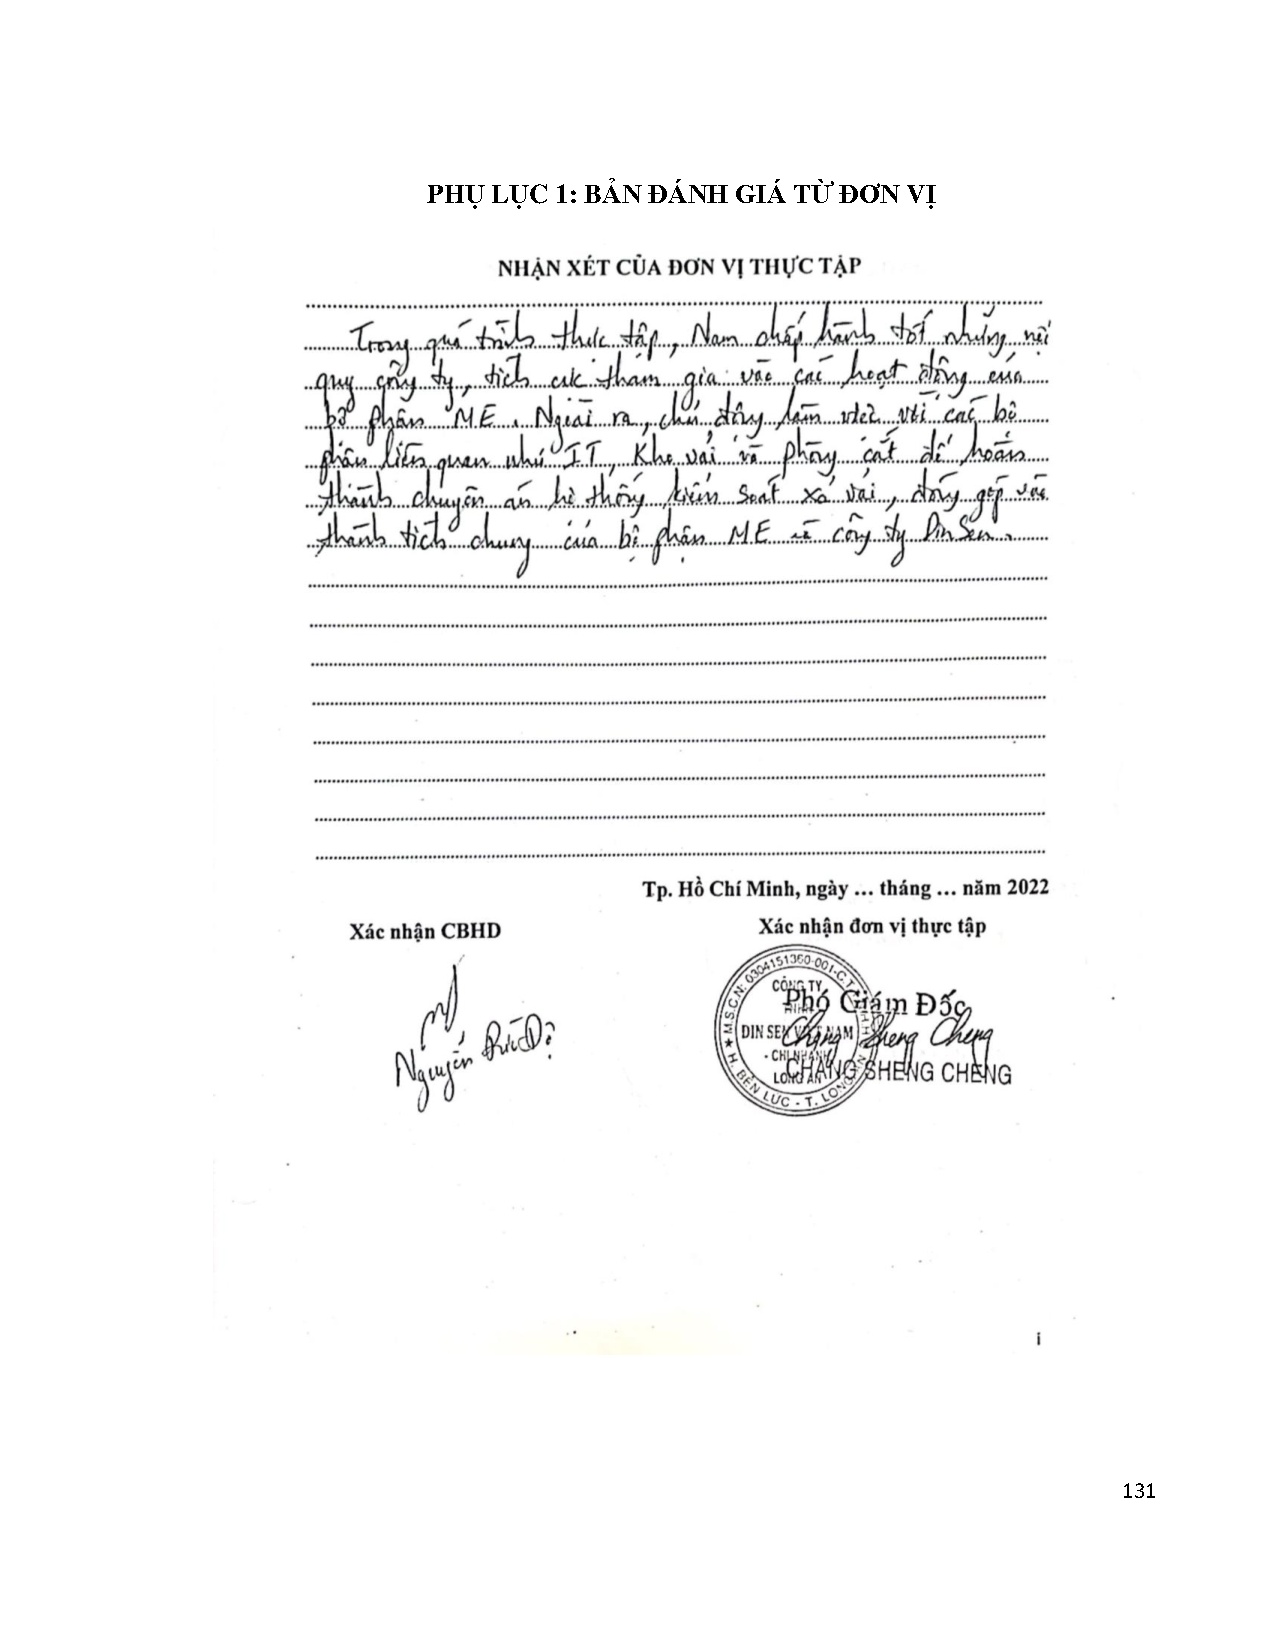 PHỤ LỤC 1: BẢN ĐÁNH GIÁ TỪ ĐƠN VỊ
NHẬN XÉT CỦA ĐƠN VỊ THỰC TẬP
Trong quá trình thực tập, Nam chấp hành tốt những nội
quy công ty, tích cực tham gia vào các hoạt động của
bộ phận ME. Ngoài ra, chủ động làm việc với các bộ
phận liên quan như IT, Kho vải và phòng cắt để hoàn
thành chuyên án hệ thống kiểm soát xả vải, đóng góp vào
thành tích chung của bộ phận ME và công ty DinSen.
Tp. Hồ Chí Minh, ngày ... tháng ... năm 2022
Xác nhận CBHD
Xác nhận đơn vị thực tập
M.S.C.N: 0304151360-001-C.T.
CÔNG TY
DIN SEN VIỆT NAM
- CHI NHÁNH
LONG AN
H. BẾN LỨC - T. LONG AN
Phó Giám Đốc
Chang Sheng Cheng
CHANG SHENG CHENG
Nguyễn Đức
i
131